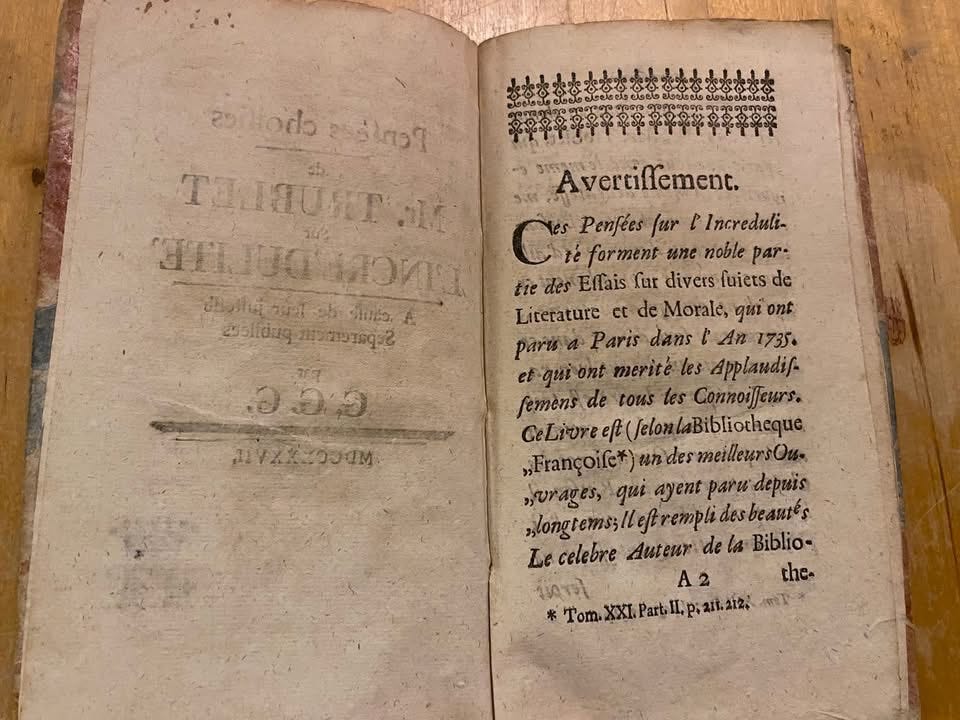 Penſées choiſies
de
Mr. TRUBLET
ſur
L'INCREDULITE'
A cauſe de leur
Separement publiées
par
Avertiſſement.
Ces Penſées ſur l' Increduli-
té forment une noble par-
tie des Eſſais ſur divers ſuiets de
Literature et de Morale, qui ont
paru a Paris dans l' An 1735.
et qui ont merité les Applaudiſ-
ſemens de tous les Connoiſſeurs.
Ce Livre eſt (ſelon la Bibliotheque
„Françoiſe*) un des meilleurs Ou-
„vrages, qui ayent paru depuis
„longtems; Il eſt rempli des beautés
Le celebre Auteur de la Biblio-
A 2 the-
* Tom. XXI. Part. II. p. 211. 212.